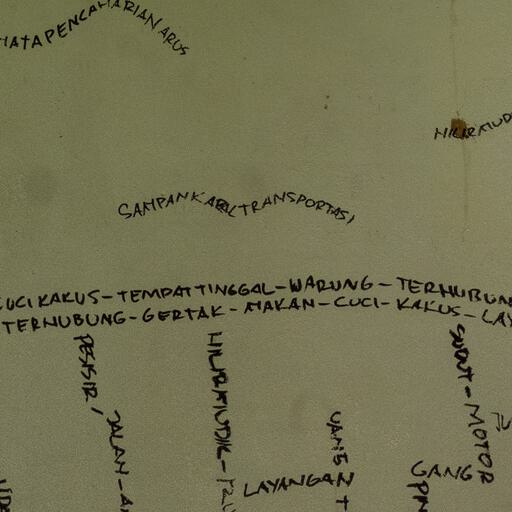 MATA PENCAHARIAN ARUS
HILIR MUD
SAMPAN KAPAL TRANSPORTASI
CUCI KAKUS - TEMPAT TINGGAL - WARUNG - TERHUBUNG
TERHUBUNG - GERTAK - MAKAN - CUCI - KAKUS - LAY
PESISIR, JALAN -
HILIR MUDIK -
LAYANGAN
GANG
SUDUT - MOTOR